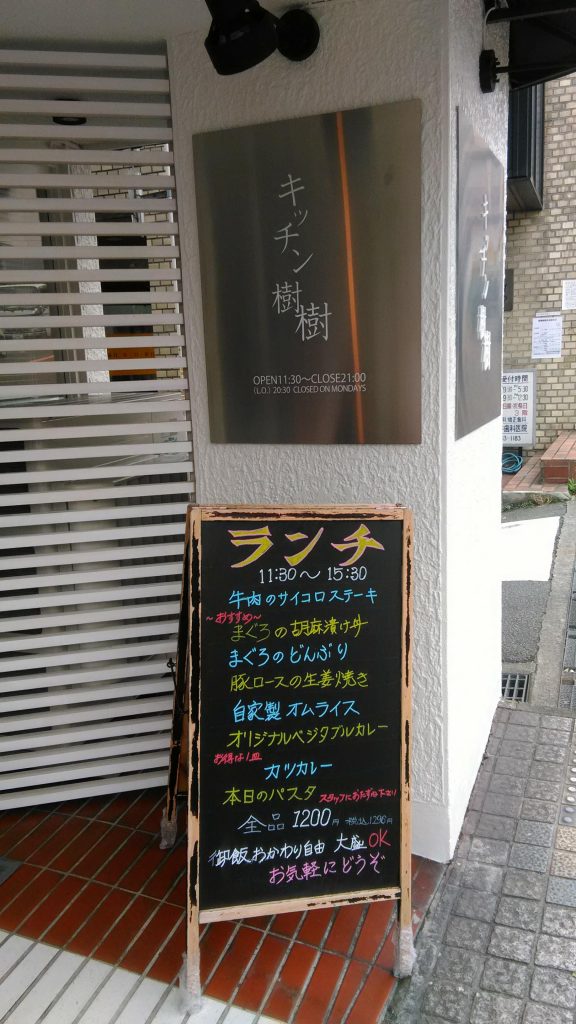 キッチン
樹樹
OPEN11:30〜CLOSE21:00
(L.O.) 20:30 CLOSED ON MONDAYS
ランチ
11:30〜15:30
牛肉のサイコロステーキ
〜おすすめ〜
まぐろの胡麻漬け丼
まぐろのどんぶり
豚ロースの生姜焼き
自家製オムライス
オリジナルベジタブルカレー
お得な1皿
カツカレー
本日のパスタ スタッフにおたずね下さい
全品 1200円 税込1296円
御飯おかわり自由 大盛OK
お気軽にどうぞ
キッチン
受付時間
歯科医院